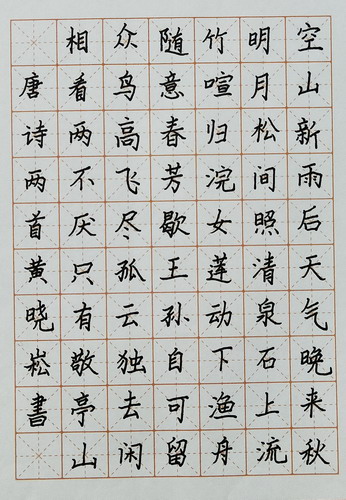 空山新雨后天气晚来秋
明月松间照清泉石上流
竹喧归浣女莲动下渔舟
随意春芳歇王孙自可留
众鸟高飞尽孤云独去闲
相看两不厌只有敬亭山
唐诗两首黄晓崧書